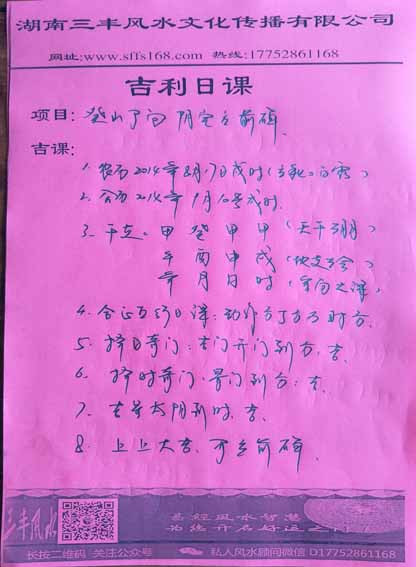 湖南三丰风水文化传播有限公司
网址:www.sffs168.com 热线:17752861168
吉利日课
项目: 癸山丁向 阴宅立前碑.
吉课:
1. 农历2014年8月17日戌时(立秋。白露)
2. 公历2014年9月10号戌时.
3. 干支: 甲 癸 甲 甲 (天干三朋)
午 酉 申 戌 (
年 月 日 时 (
4. 日课:
5. 择日奇门: 开门到方. 吉.
6. 择时奇门: 景门到方: 吉.
7. 太阴到时. 吉.
8. 上上大吉. 可立前碑.
三丰风水
易經風水智慧
长按二维码 关注公众号
私人风水顾问微信 D17752861168